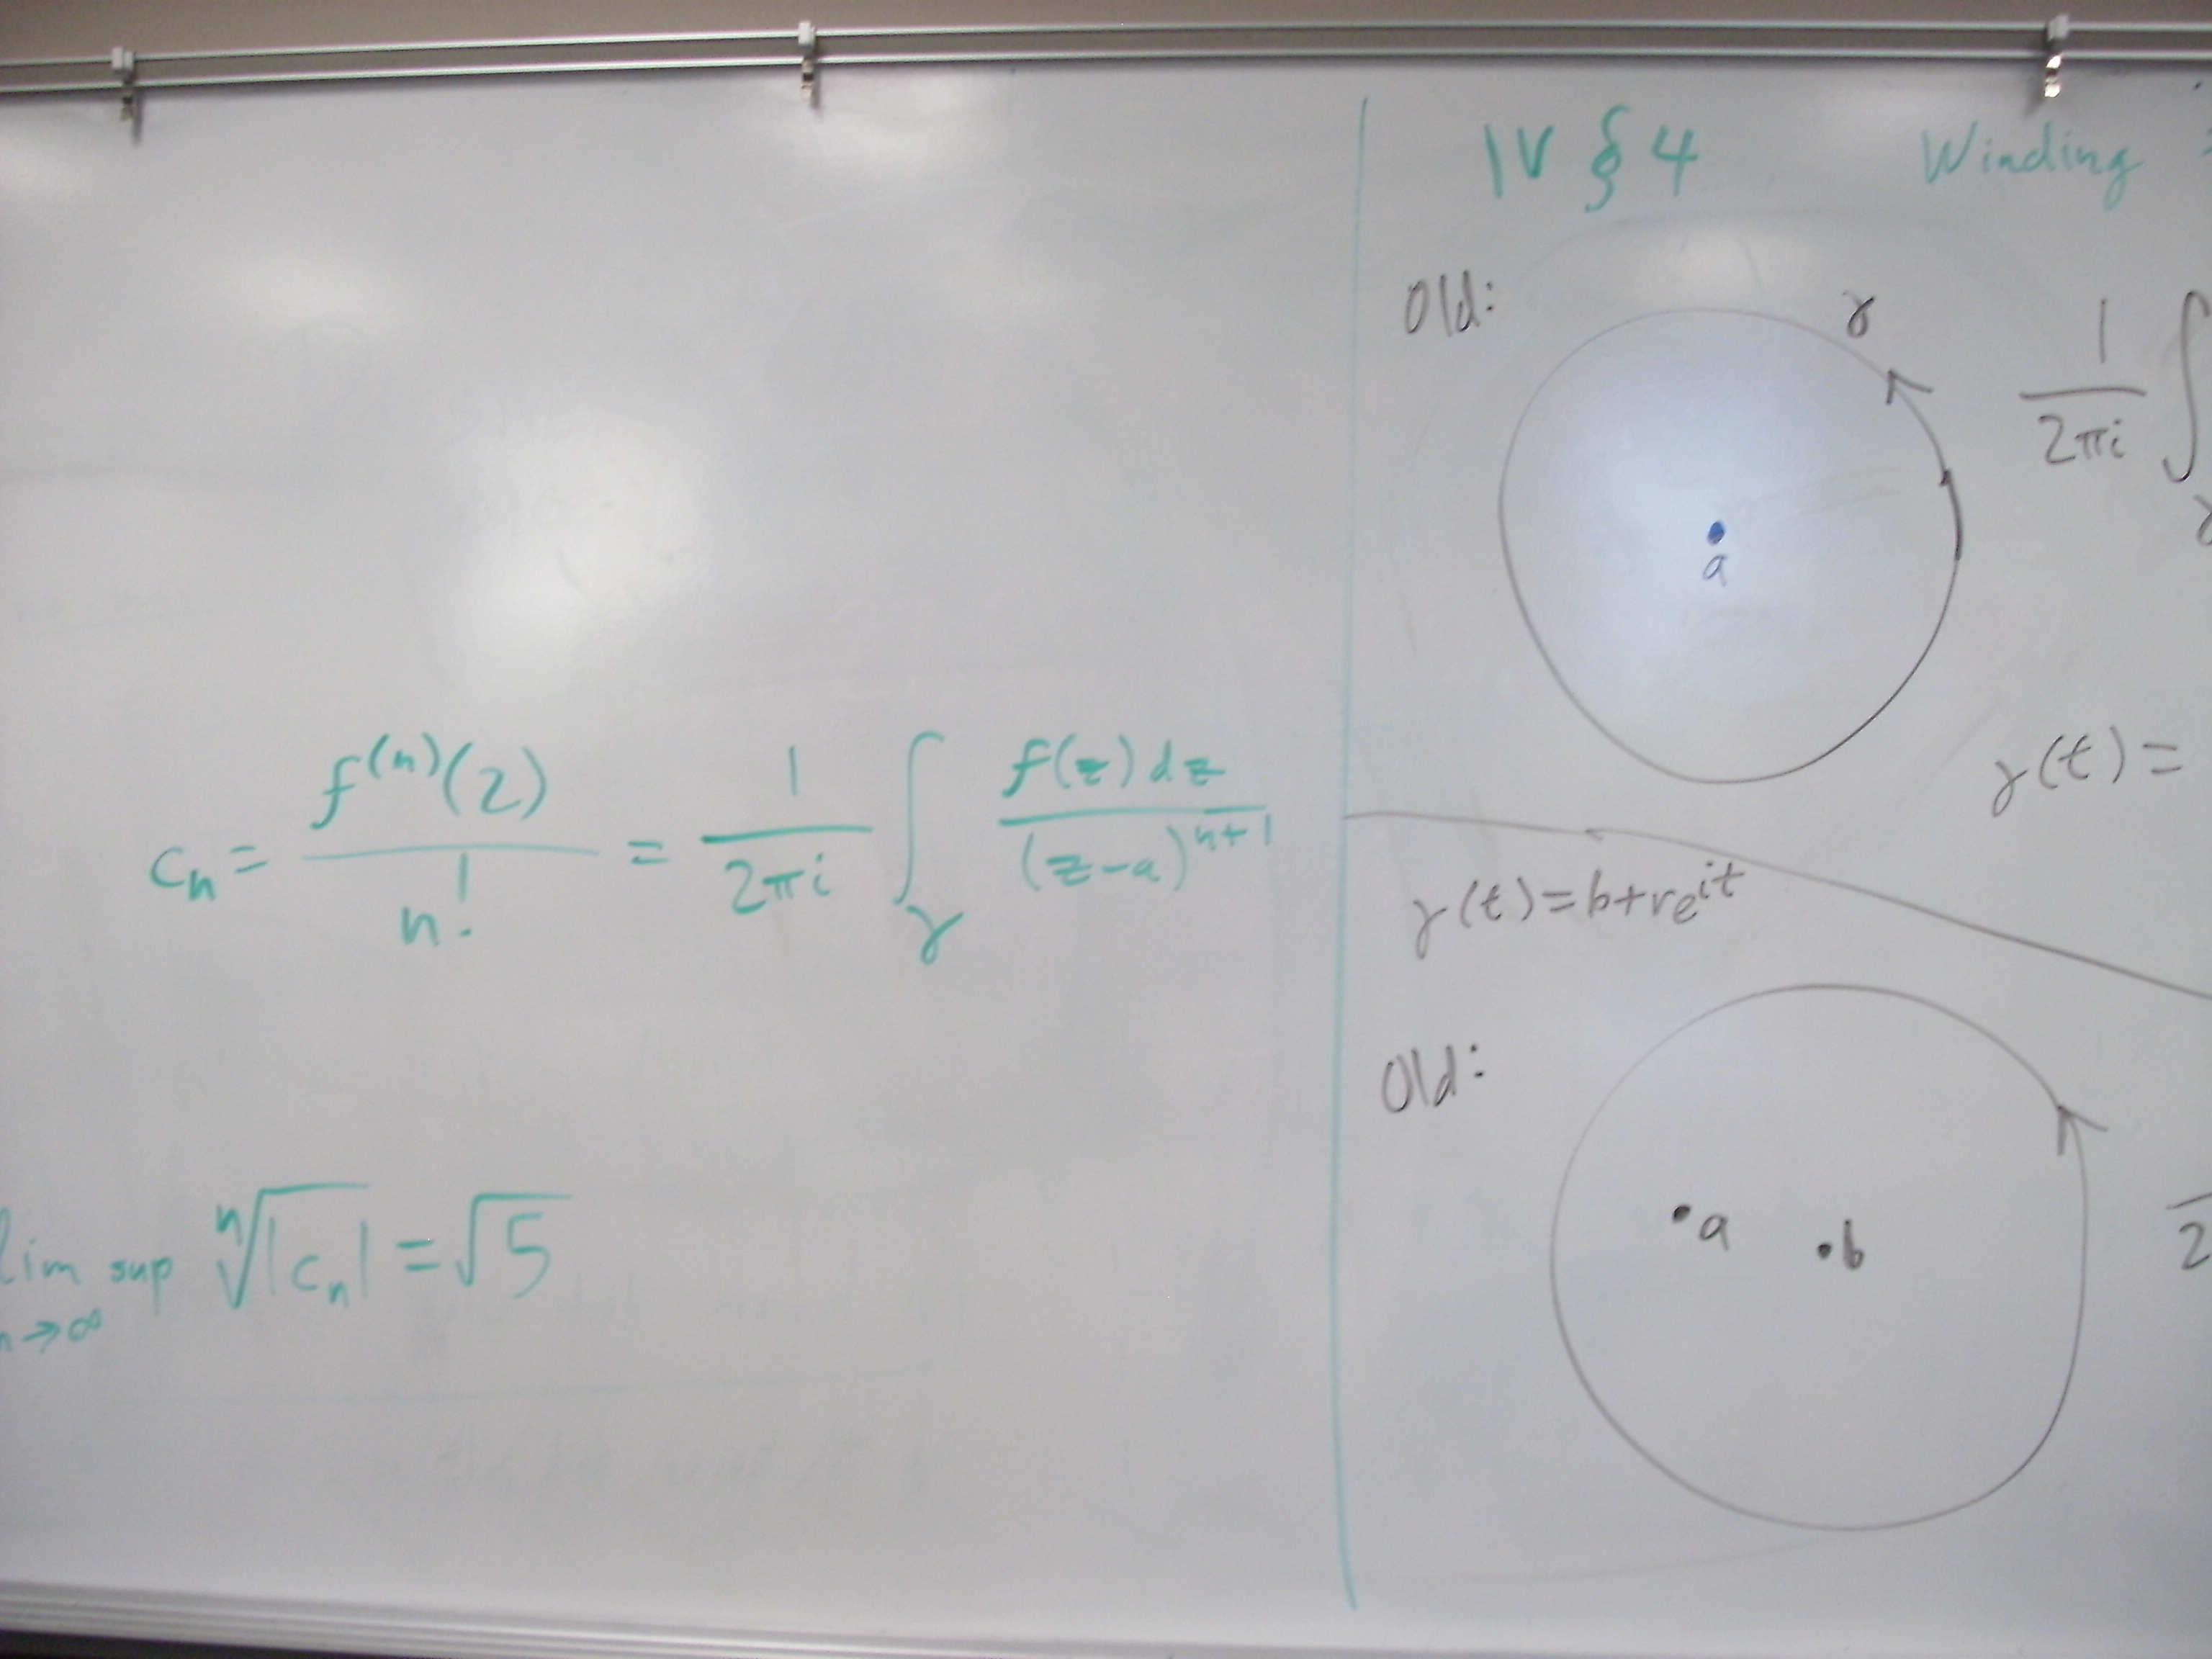 c_n = f^(n)(2) / n! = 1 / 2πi ∫_γ f(z) dz / (z-a)^n+1
lim sup n→∞ ⁿ√|c_n| = √5
IV § 4 Winding
Old:
γ
a
1 / 2πi ∫_γ
γ(t) =
γ(t) = b+re^it
Old:
a
b
2